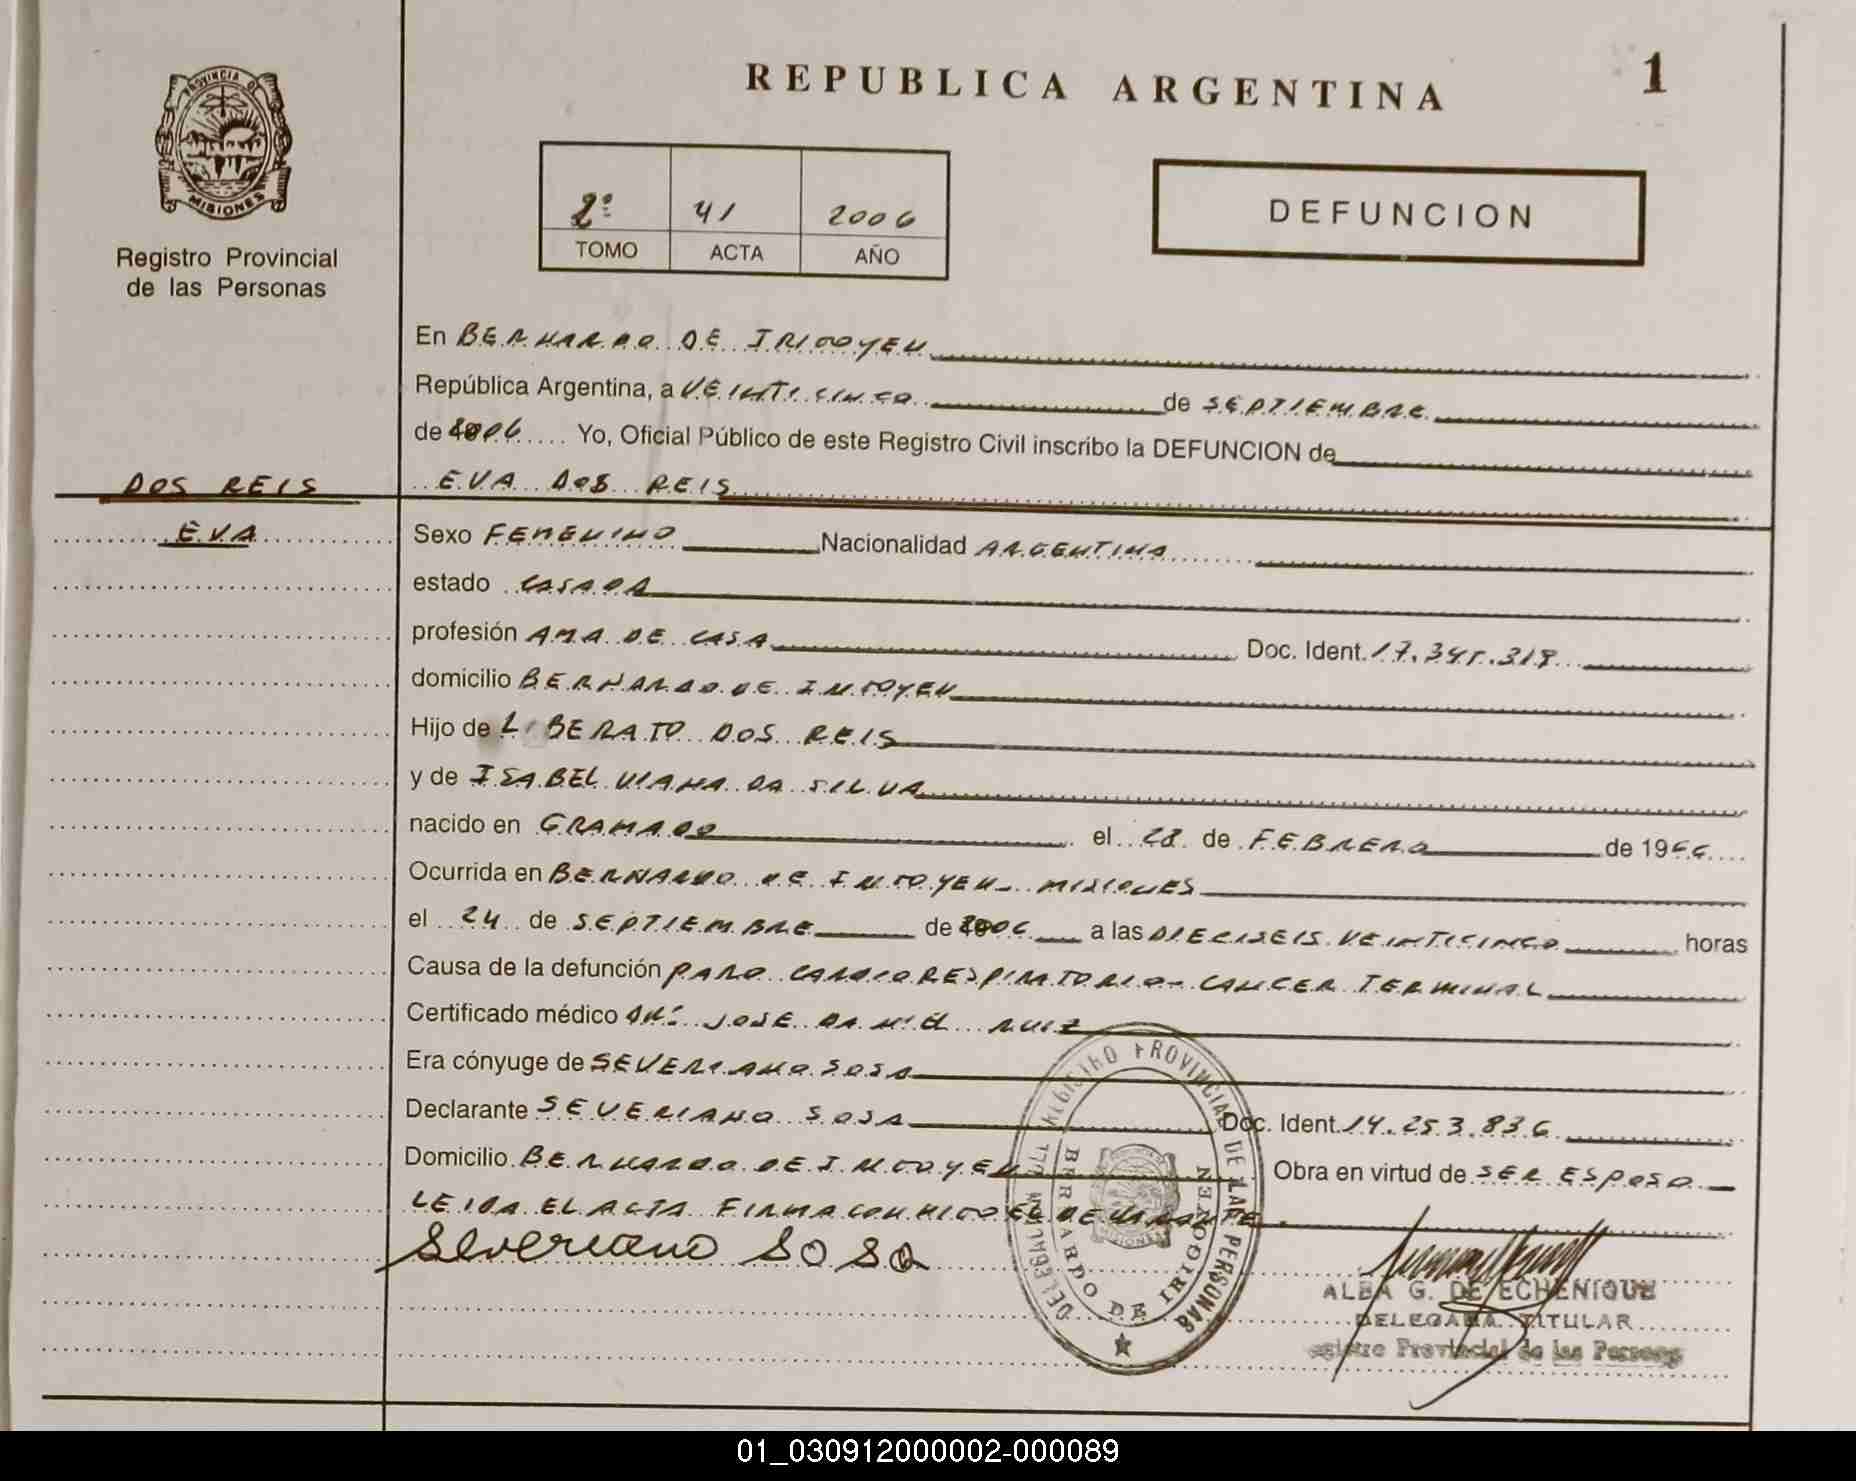 REPUBLICA ARGENTINA
1
PROVINCIA DE
MISIONES
Registro Provincial
de las Personas
2º 41 2006
TOMO ACTA AÑO
DEFUNCION
En BERNARDO DE IRIGOYEN
República Argentina, a VEINTICINCO de SEPTIEMBRE
de 2006 Yo, Oficial Público de este Registro Civil inscribo la DEFUNCION de
DOS REIS
EVA DOS REIS
EVA
Sexo FEMENINO Nacionalidad ARGENTINA
estado CASADA
profesión AMA DE CASA Doc. Ident. 17.345.318
domicilio BERNARDO DE IRIGOYEN
Hijo de LIBERATO DOS REIS
y de ISABEL VIANA DA SILVA
nacido en GRAMADO el 28 de FEBRERO de 1966
Ocurrida en BERNARDO DE IRIGOYEN - MISIONES
el 24 de SEPTIEMBRE de 2006 a las DIECISEIS VEINTICINCO horas
Causa de la defunción PARO CARDIORESPIRATORIO - CANCER TERMINAL
Certificado médico DR. JOSE DANIEL RUIZ
Era cónyuge de SEVERIANO SOSA
Declarante SEVERIANO SOSA Doc. Ident. 14.253.836
Domicilio BERNARDO DE IRIGOYEN Obra en virtud de SER ESPOSO
LEIDA EL ACTA FIRMA CONMIGO EL DECLARANTE.
Severiano SOSA
DELEGACION REGISTRO PROVINCIAL DE LAS PERSONAS
BERNARDO DE IRIGOYEN
MISIONES
ALBA G. DE ECHENIQUE
DELEGADA TITULAR
egistro Provincial de las Personas
01_030912000002-000089